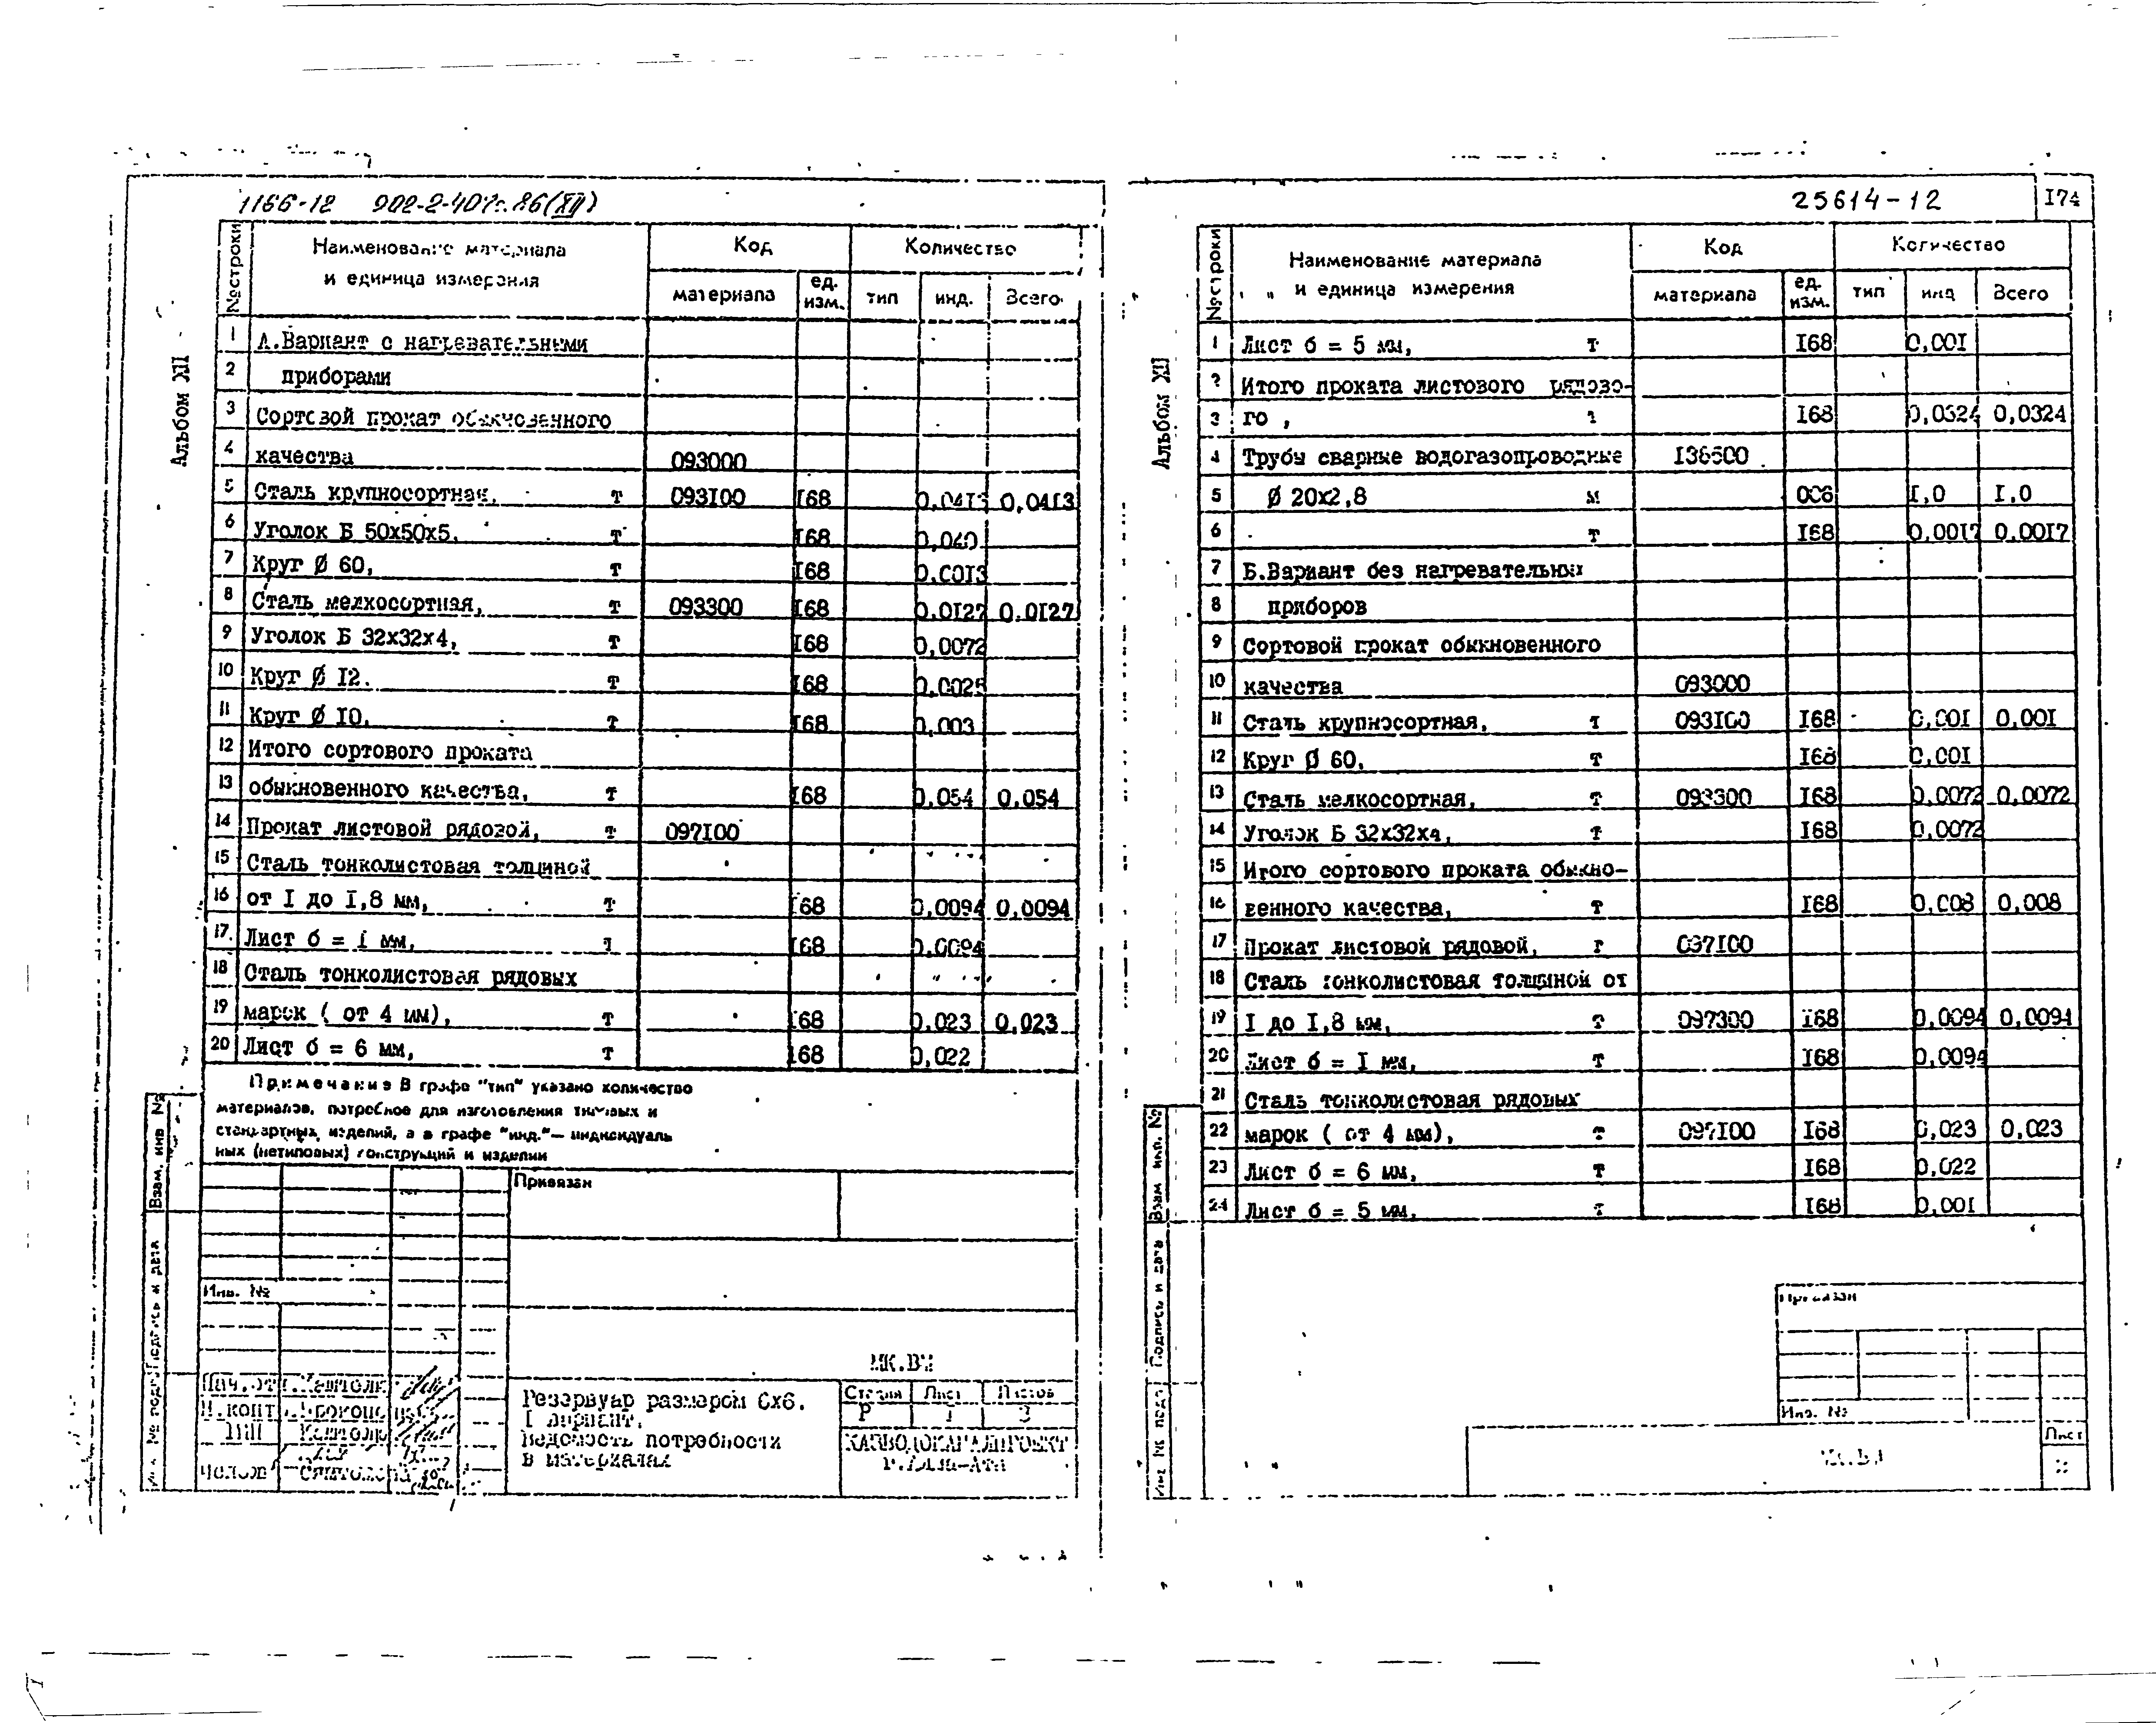 1166-12 902-2-407с.86(XII)
Альбом XII
№ строки Наименование материала и единица измерения Код Количество
материала ед. изм. тип инд. Всего
1 А.Вариант с нагревательными
2 приборами
3 Сортовой прокат обыкновенного
4 качества 093000
5 Сталь крупносортная, т 093I00 I68 0,04I3 0,04I3
6 Уголок Б 50х50х5, т I68 0,040
7 Круг Ø 60, т I68 0,00I3
8 Сталь мелкосортная, т 093300 I68 0,0I27 0,0I27
9 Уголок Б 32х32х4, т I68 0,0072
10 Круг Ø I2. т I68 0,0025
11 Круг Ø I0, т I68 0,003
12 Итого сортового проката
13 обыкновенного качества, т I68 0,054 0,054
14 Прокат листовой рядовой, т 097I00
15 Сталь тонколистовая толщиной
16 от I до I,8 мм, т I68 0,0094 0,0094
17 Лист б = I мм, т I68 0,0094
18 Сталь тонколистовая рядовых
19 марок ( от 4 мм), т I68 0,023 0,023
20 Лист б = 6 мм, т I68 0,022
Примечание В графе "тип" указано количество
материалов, потребное для изготовления типовых и
стандартных изделий, а в графе "инд."— индивидуаль
ных (нетиповых) конструкций и изделий
Привязан
Инв. №
Взам. инв №
Подпись и дата
Нач.отд.
Н.конт
ГИП
МК.ВМ
Резервуар размером 6х6.
I вариант.
Ведомость потребности
в материалах
Стадия Лист Листов
Р I 3
КАЗВОДОКАНАЛПРОЕКТ
г.Алма-Ата
25614-12 I74
Альбом XII
№ строки Наименование материала и единица измерения Код Количество
материала ед. изм. тип инд Всего
1 Лист б = 5 мм, т I68 0,00I
2 Итого проката листового рядово-
3 го , т I68 0,0324 0,0324
4 Трубы сварные водогазопроводные I38500
5 Ø 20х2,8 м 006 I,0 I,0
6 т I68 0,00I7 0,00I7
7 Б.Вариант без нагревательных
8 приборов
9 Сортовой прокат обыкновенного
10 качества 093000
11 Сталь крупносортная, т 093I00 I68 0,00I 0,00I
12 Круг Ø 60, т I68 0,00I
13 Сталь мелкосортная, т 093300 I68 0,0072 0,0072
14 Уголок Б 32х32х4, т I68 0,0072
15 Итого сортового проката обыкно-
16 венного качества, т I68 0,008 0,008
17 Прокат листовой рядовой, т 097I00
18 Сталь тонколистовая толщиной от
19 I до I,8 мм, т 097300 I68 0,0094 0,0094
20 Лист б = I мм, т I68 0,0094
21 Сталь тонколистовая рядовых
22 марок ( от 4 мм), т 097I00 I68 0,023 0,023
23 Лист б = 6 мм, т I68 0,022
24 Лист б = 5 мм, т I68 0,00I
Взам инв. №
Подпись и дата
Инв № подл
Привязан
Инв. №
Лист